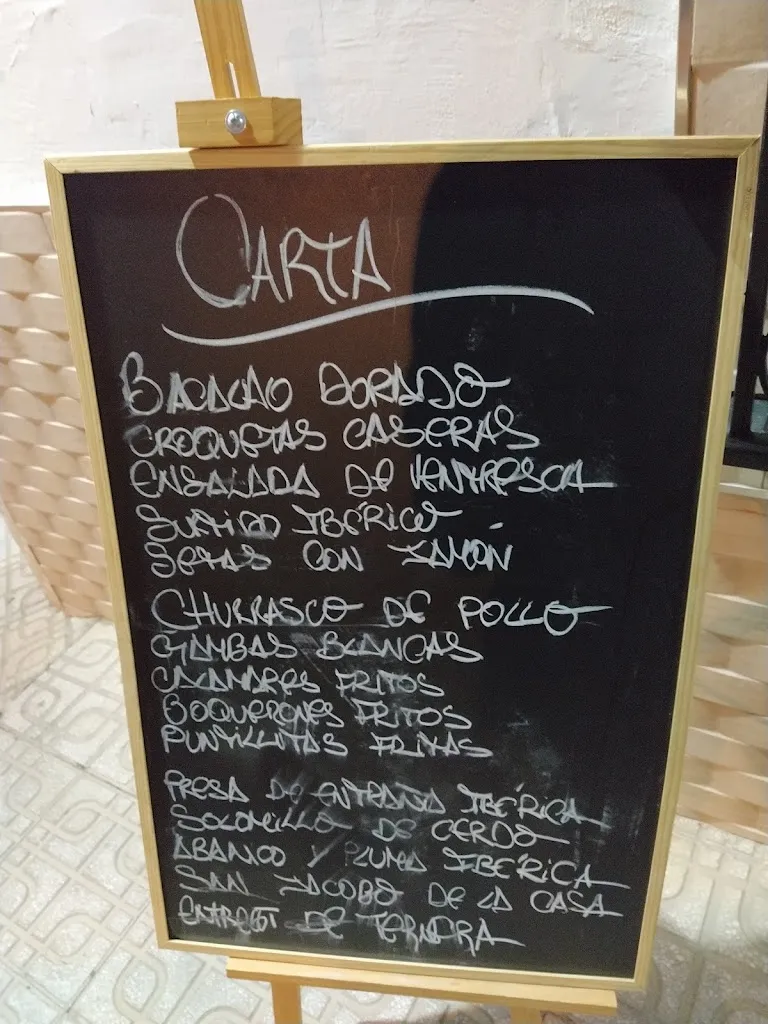 CARTA
BACALAO DORADO
CROQUETAS CASERAS
ENSALADA DE VENTRESCA
SURTIDO IBÉRICO
SETAS CON JAMÓN
CHURRASCO DE POLLO
GAMBAS BLANCAS
CALAMARES FRITOS
BOQUERONES FRITOS
PUNTILLITAS FRITAS
PRESA DE ENTRAÑA IBÉRICA
SOLOMILLO DE CERDO
ABANICO Y PLUMA IBÉRICA
SAN JACOBO DE LA CASA
ENTRECOT DE TERNERA